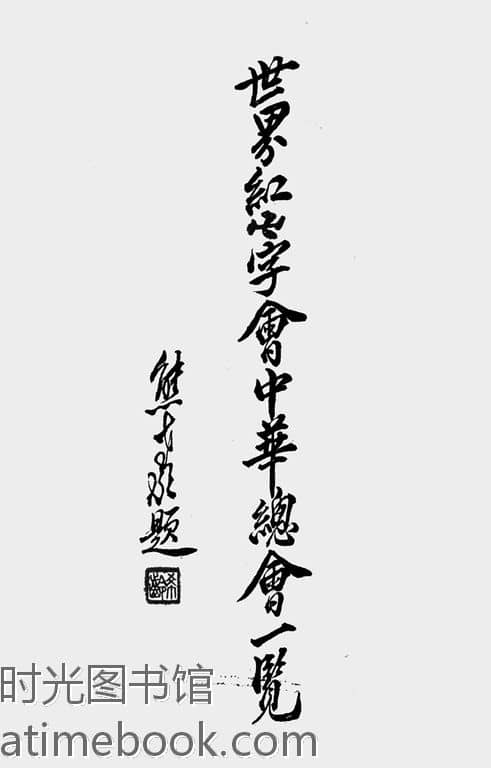 世界紅卍字會中華總會一覽
熊希齡題
希齡
时光图书馆
atimebook.com